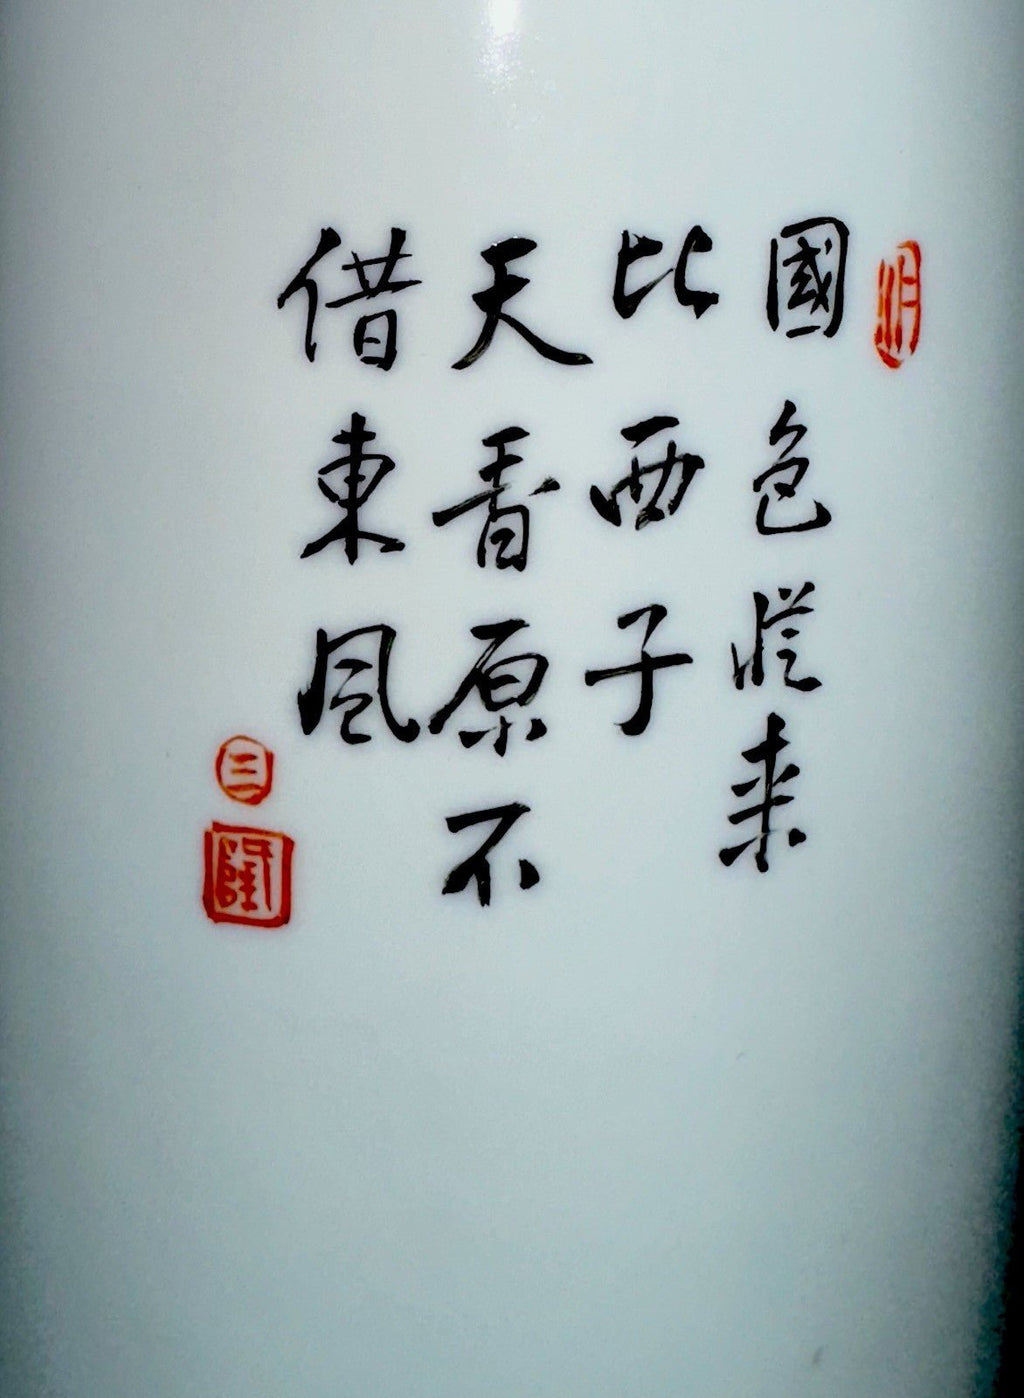 國色從来
比西子
天香原不
借東風
三